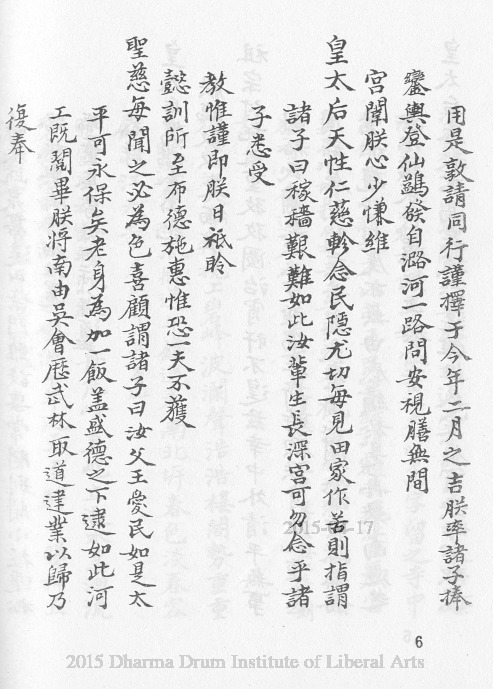 用是敦請同行謹擇于今年二月之吉朕率諸子捧
鑾輿登仙鷁發自潞河一路問安視膳無間
宮闈朕心少慊維
皇太后天性仁慈軫念民隱尤切每見田家作苦則指謂
諸子曰稼穡艱難如此汝輩生長深宮可勿念乎諸
子悉受
教惟謹即朕日祗聆
懿訓所至布德施惠惟恐一夫不獲
聖慈每聞之必為色喜顧謂諸子曰汝父王愛民如是太
平可永保矣老身為加一飯盖盛德之下逮如此河
工既閱畢朕將南由吳會歷武林取道建業以歸乃
復奉
6
2015 Dharma Drum Institute of Liberal Arts